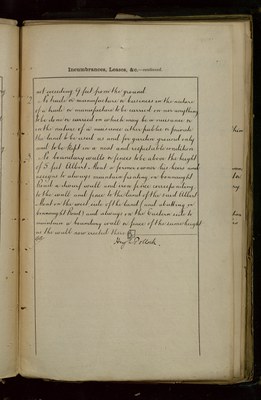 Incumbrances, Leases, &c.—continued.
not exceeding 9 feet from the ground
No trade or manufacture or business in the nature
of a trade or manufacture to be carried on nor anything
to be done or carried on which may be a nuisance or
in the nature of a nuisance either public or private
the land to be used as and for garden ground only
and to be kept in a neat and respectable condition
No boundary walls or fences to be above the height
of 5 feet Albert Mead a former owner his heirs and
assigns to always maintain fronting on
Road a dwarf wall and iron fence corresponding
to the wall and fence to the land of the said Albert
Mead on the west side of the land and abutting on
Road and always on the Eastern side to
maintain a boundary wall or fence of the same height
as the wall now erected there